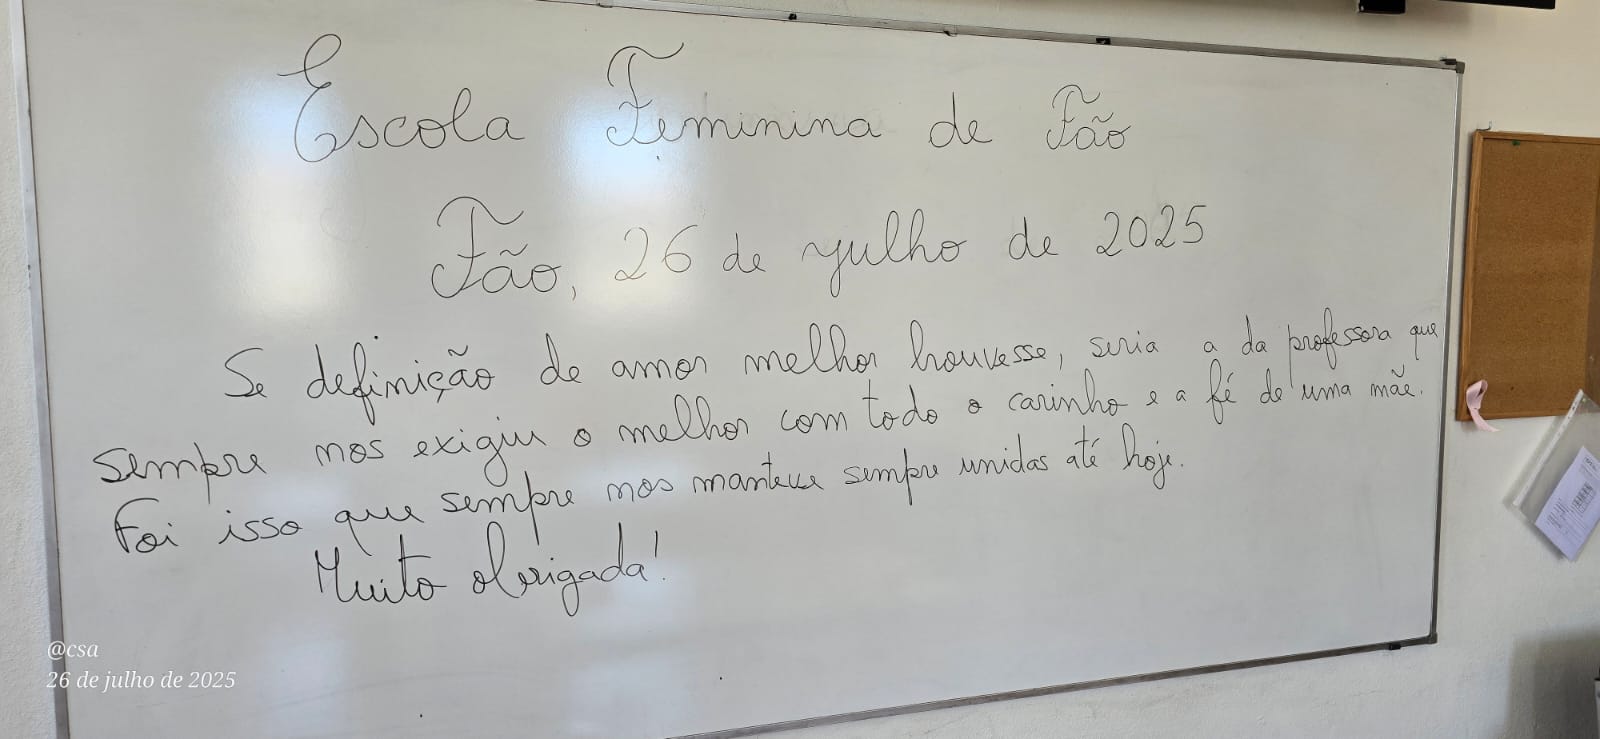 Escola Feminina de Fão
Fão, 26 de julho de 2025
Se definição de amor melhor houvesse, seria a da professora que
sempre nos exigiu o melhor com todo o carinho e a fé de uma mãe.
Foi isso que sempre nos manteve sempre unidas até hoje.
Muito obrigada!
@csa
26 de julho de 2025